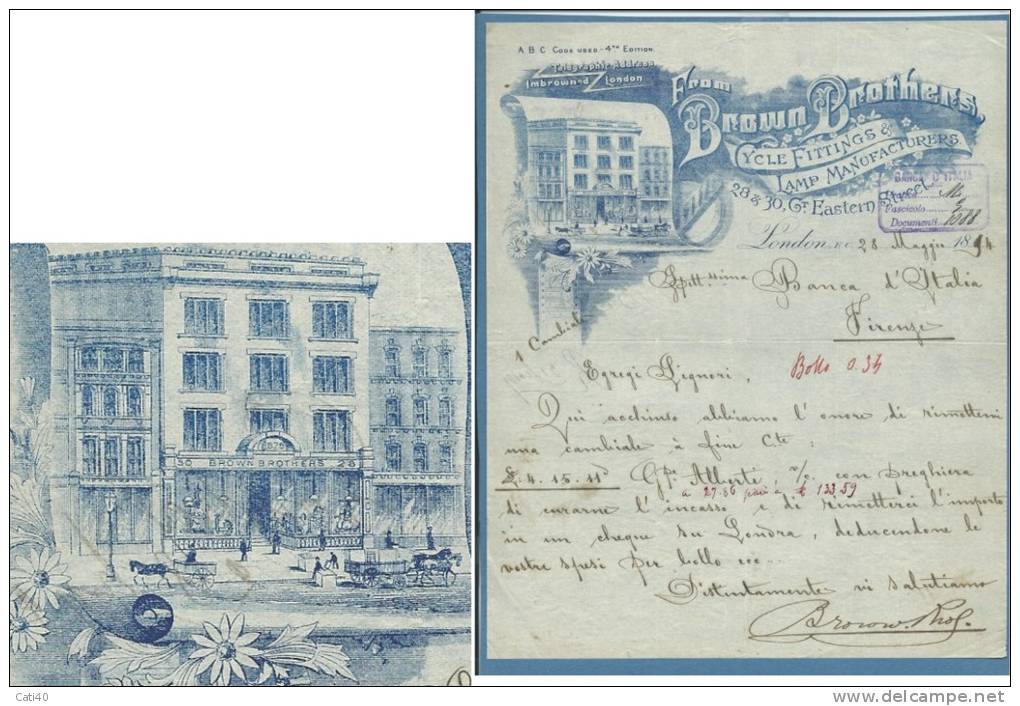 A B C CODE USED.-4TH EDITION.
Telegraphic Address
Imbrowned London
From
Brown Brothers,
CYCLE FITTINGS &
LAMP MANUFACTURERS.
28 & 30, GT EASTERN Street
BANCA D'ITALIA
Fascicolo
Documenti 1088
London, E.C. 28 Maggio 1894
Spett.ssima Banca d'Italia
Firenze
1 Cambiale
Egregi Signori,
Bollo 0.34
Qui acchiuso abbiamo l'onore di rimettervi
una cambiale à fine Cte:
£.4.15.11d Gpe Alberti, con preghiera
a 27.86
133,59
di curarne l'incasso e di rimetterci l'importo
in un cheque su Londra, deducendone le
vostre spese per bollo
Distintamente vi salutiamo
Brown Bros.
1876
30 BROWN BROTHERS 28
Cati40
www.delcampe.net